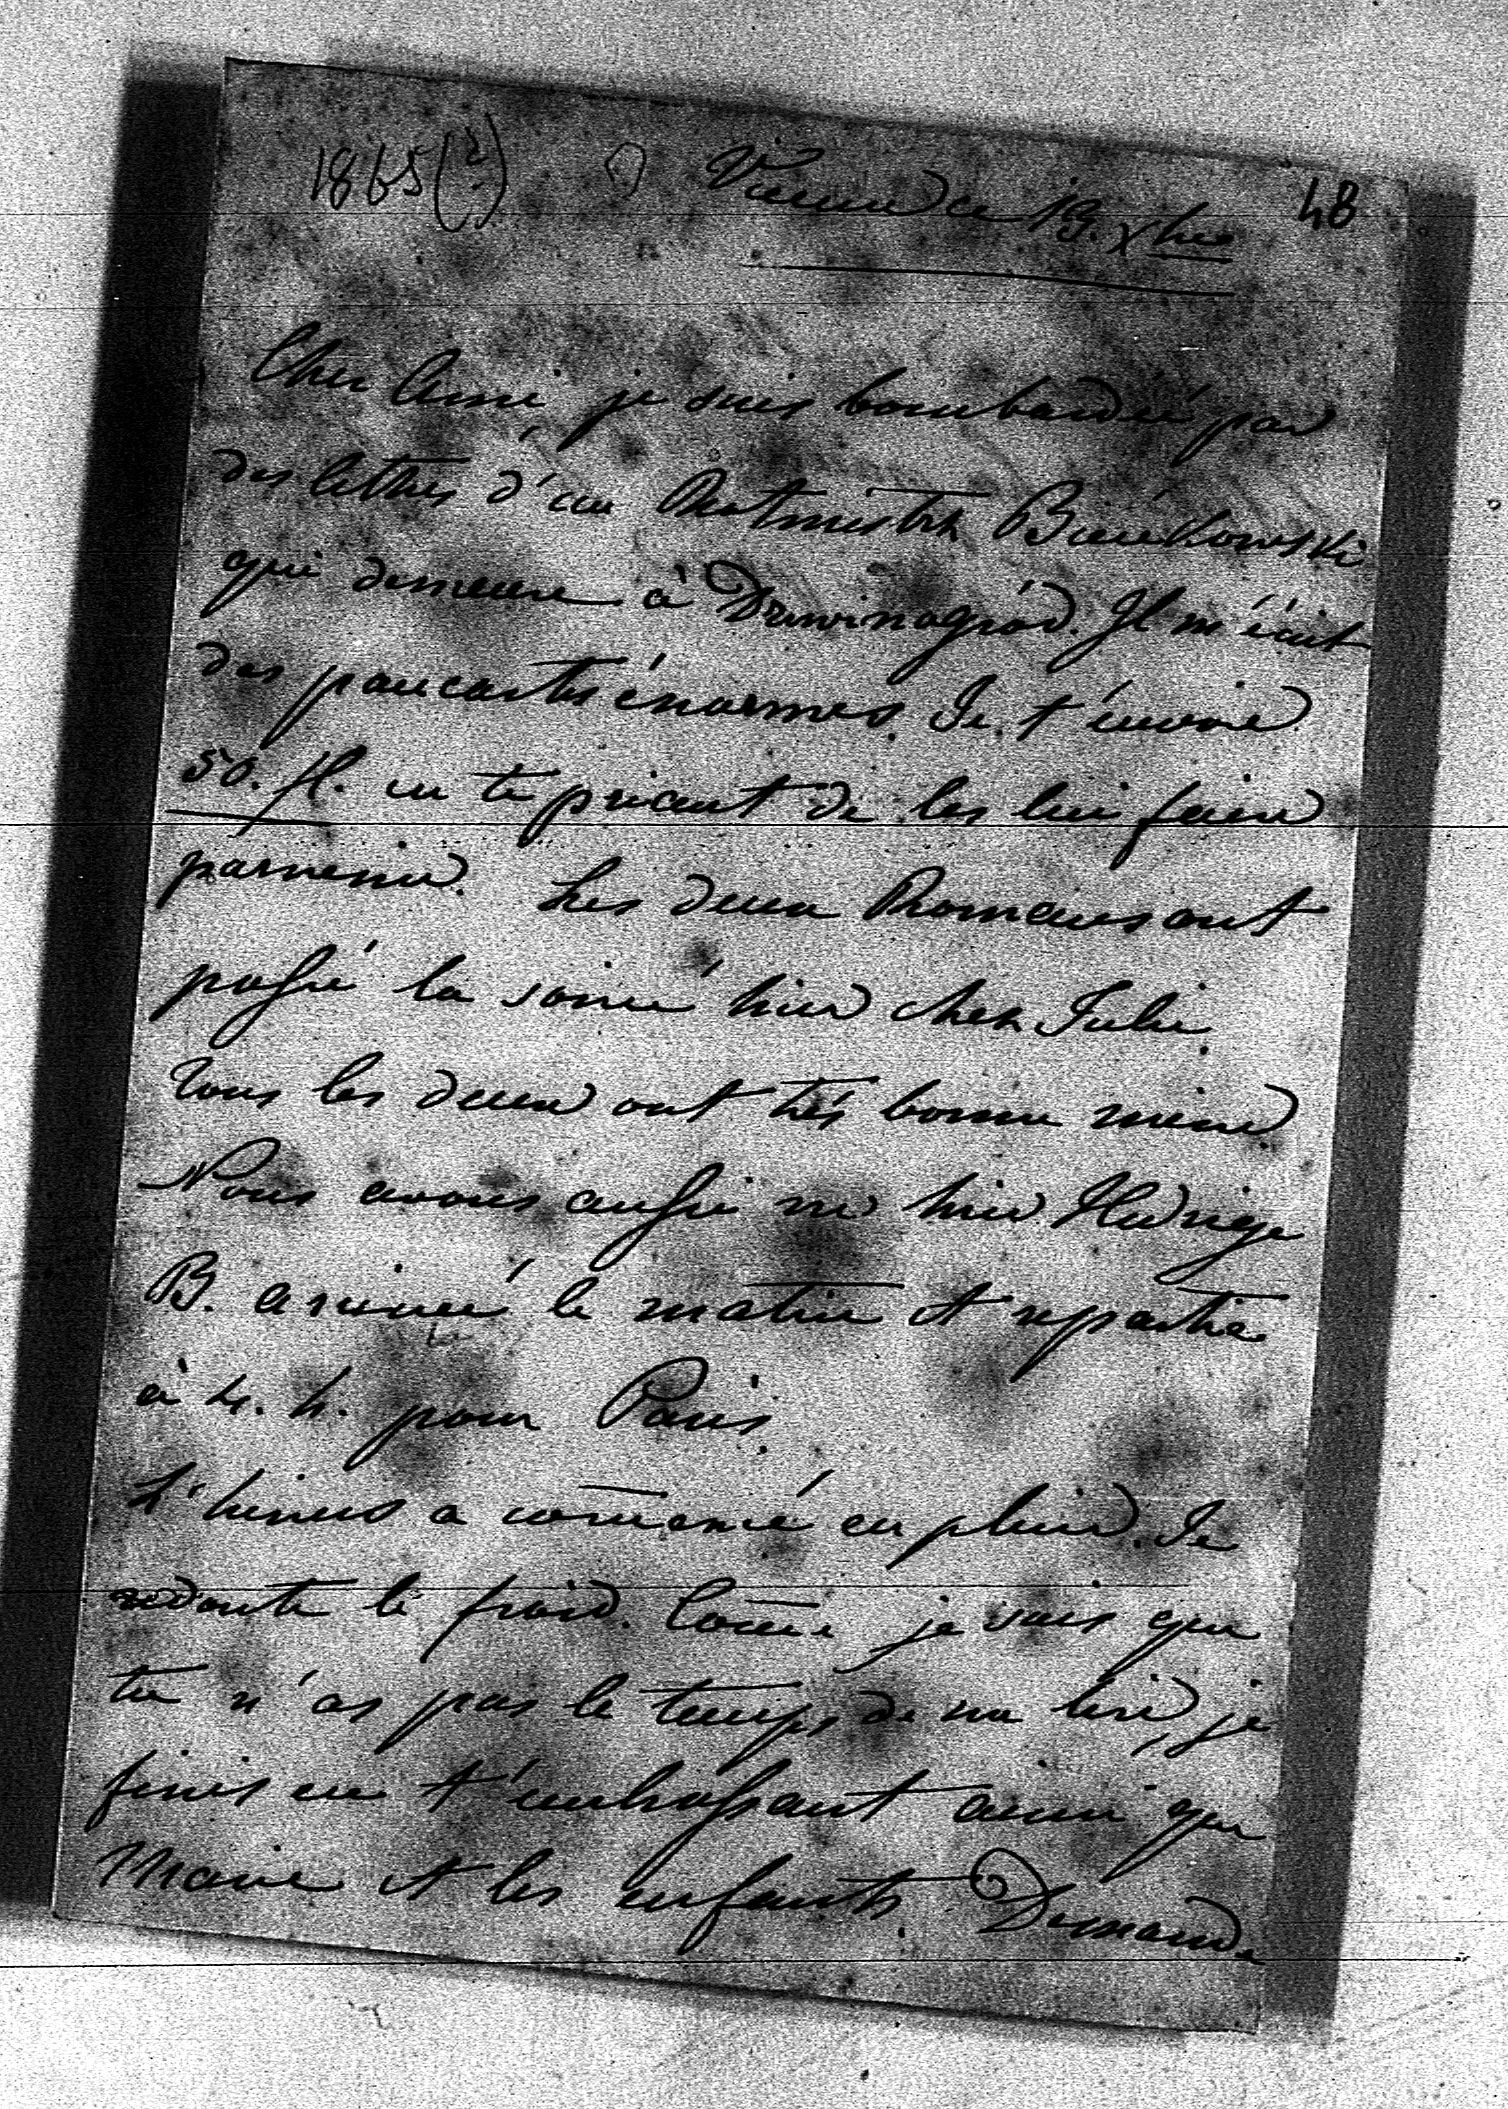 1865(?) Vienne ce 19. Xbre 48
Cher Ami, je suis bombardée par
des lettres d'un Rotmistrz Bieńkowski
qui demeure à Dzwinogród. Il m'écrit
des pancartes énormes. Je t'envoie
50. fl. en te priant de les lui faire
parvenir. Les deux Romans ont
passé la soirée hier chez Julie.
Tous les deux ont très bonne mine.
Nous avons aussi vu hier Hedvige
B. arrivée le matin et repartie
à 4. h. pour Paris.
L'hiver a com̄encé en plein. Je
redoute le froid. Com̄e je sais que
tu n'as pas le temps de me lire, je
finis en t'embrassant ainsi que
Marie et les enfants. Demande